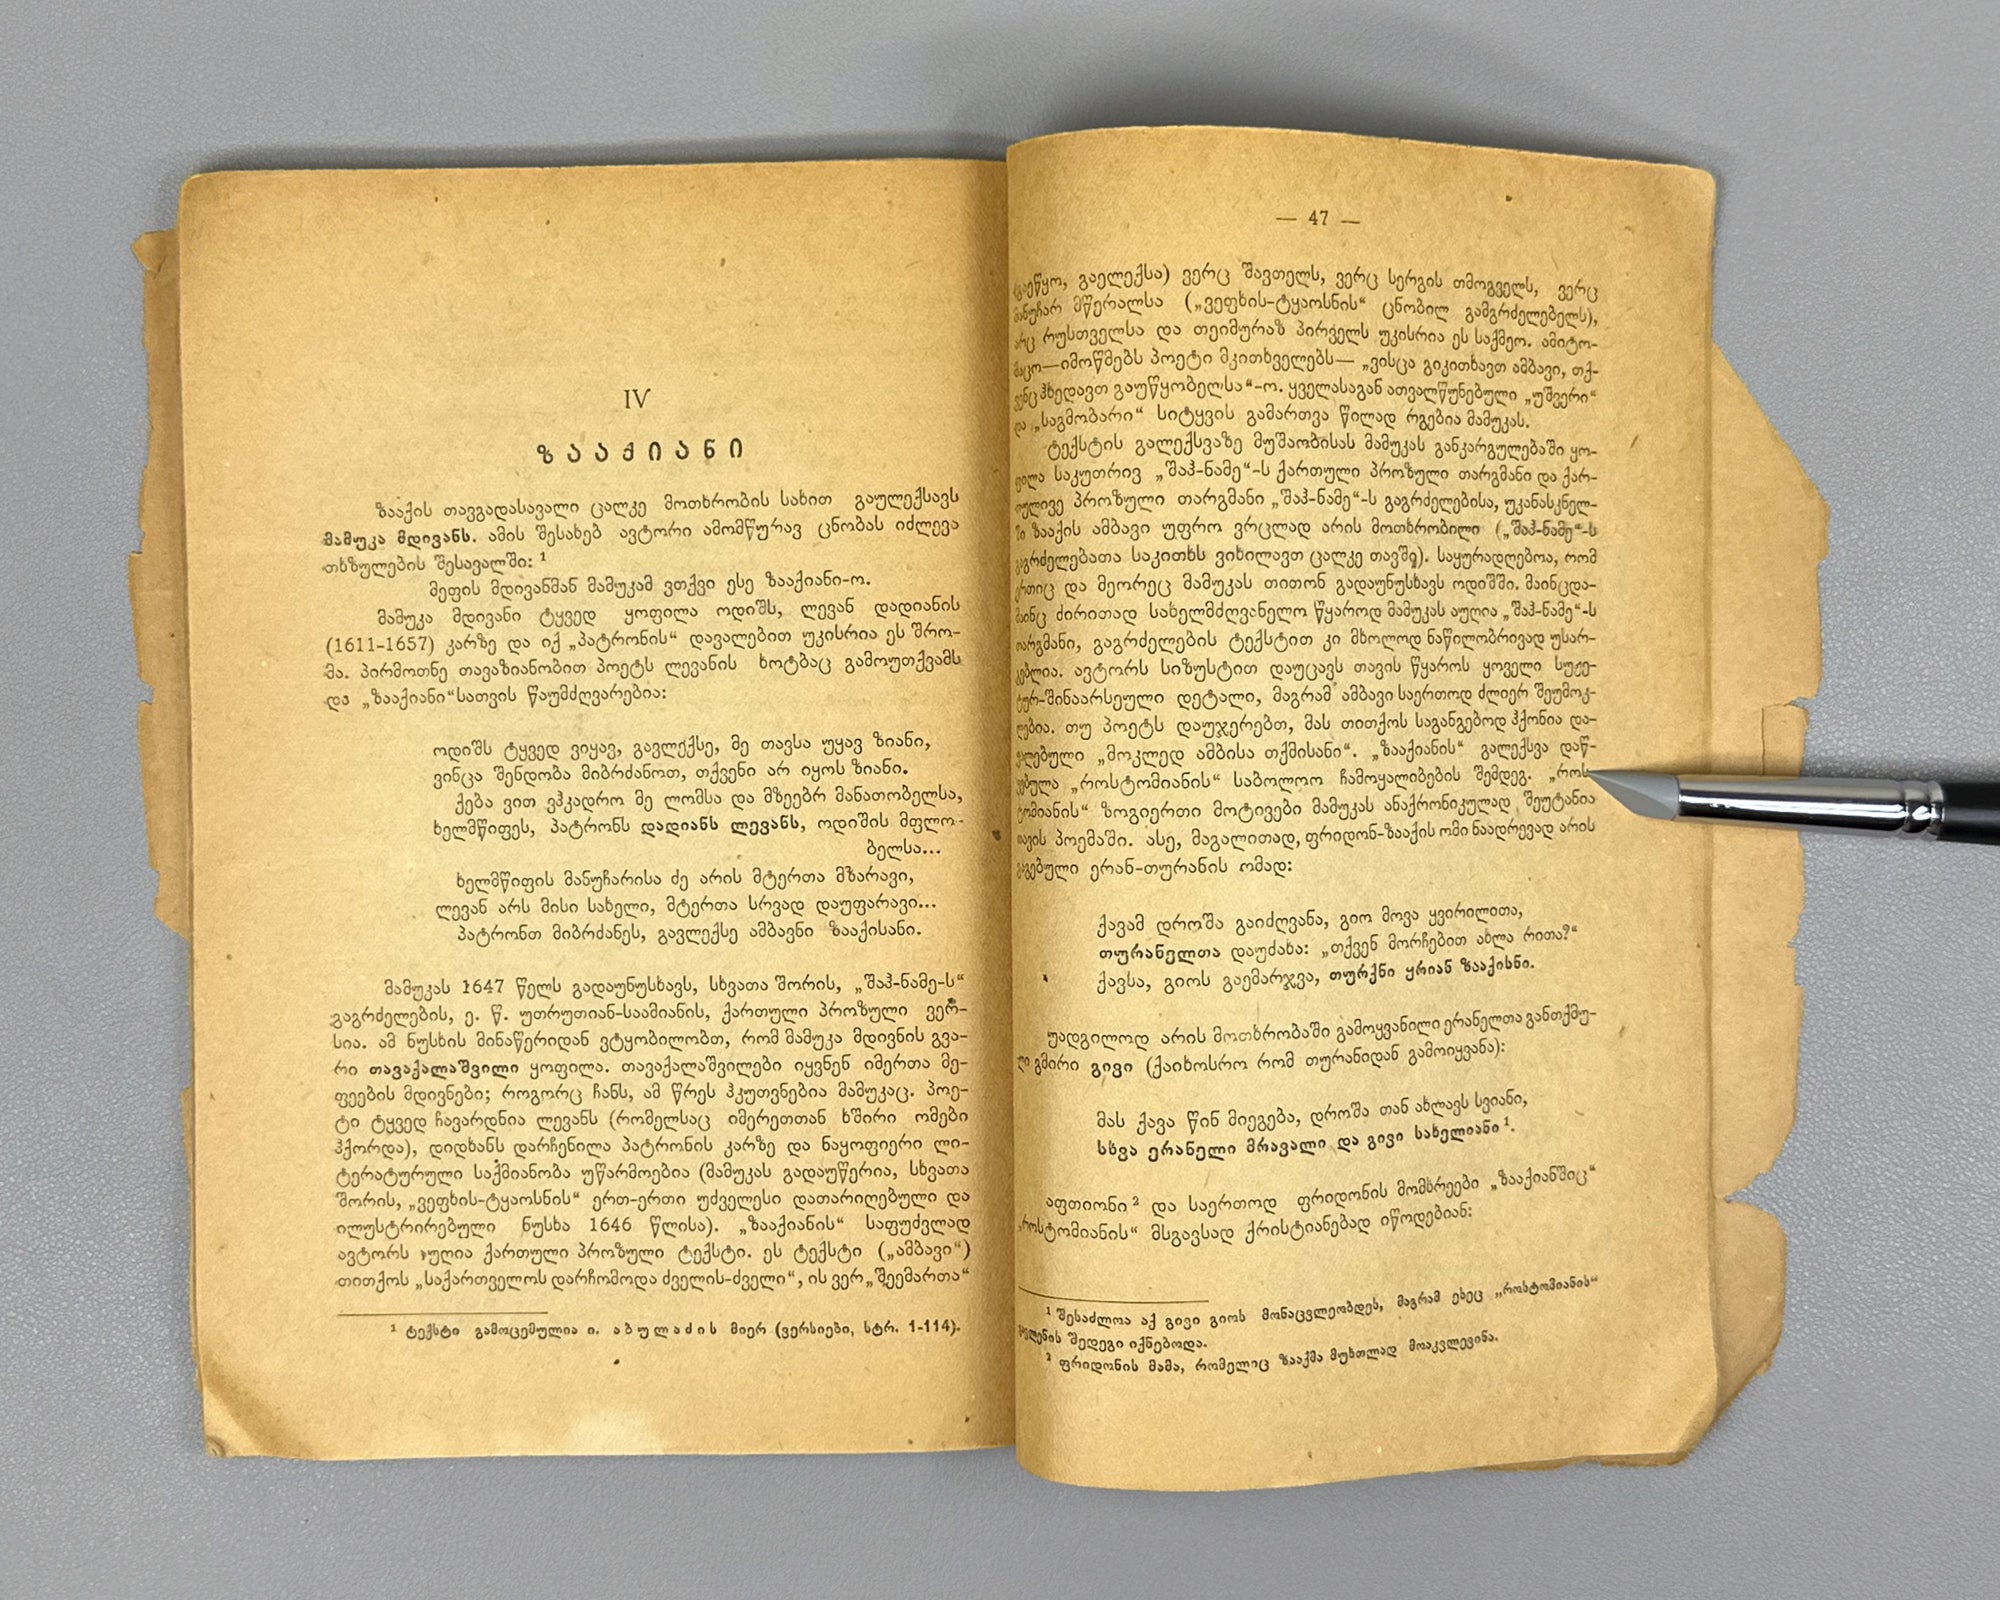 IV
ზააქიანი
ზააქის თავგადასავალი ცალკე მოთხრობის სახით გაულექსავს
მამუკა მდივანს. ამის შესახებ ავტორი ამომწურავ ცნობას იძლევა
თხზულების შესავალში: ¹
მეფის მდივანმან მამუკამ ვთქვი ესე ზააქიანი-ო.
მამუკა მდივანი ტყვედ ყოფილა ოდიშს, ლევან დადიანის
(1611-1657) კარზე და იქ „პატრონის“ დავალებით უკისრია ეს შრო-
მა. პირმოთნე თავაზიანობით პოეტს ლევანის ხოტბაც გამოუთქვამს
და „ზააქიანი“სათვის წაუმძღვარებია:
ოდიშს ტყვედ ვიყავ, გავლექსე, მე თავსა უყავ ზიანი,
ვინცა შენდობა მიბრძანოთ, თქვენი არ იყოს ზიანი.
ქება ვით ვჰკადრო მე ლომსა და მზეებრ მანათობელსა,
ხელმწიფეს, პატრონს დადიანს ლევანს, ოდიშის მფლო-
ბელსა...
ხელმწიფის მანუჩარისა ძე არის მტერთა მზარავი,
ლევან არს მისი სახელი, მტერთა სრვად დაუფარავი...
პატრონთ მიბრძანეს, გავლექსე ამბავნი ზააქისანი.
მამუკას 1647 წელს გადაუნუსხავს, სხვათა შორის, „შაჰ-ნამე-ს“
გაგრძელების, ე. წ. უთრუთიან-საამიანის, ქართული პროზული ვერ-
სია. ამ ნუსხის მინაწერიდან ვტყობილობთ, რომ მამუკა მდივნის გვა-
რი თავაქალაშვილი ყოფილა. თავაქალაშვილები იყვნენ იმერთა მე-
ფეების მდივნები; როგორც ჩანს, ამ წრეს ჰკუთვნებია მამუკაც. პოე-
ტი ტყვედ ჩავარდნია ლევანს (რომელსაც იმერეთთან ხშირი ომები
ჰქორდა), დიდხანს დარჩენილა პატრონის კარზე და ნაყოფიერი ლი-
ტერატურული საქმიანობა უწარმოებია (მამუკას გადაუწერია, სხვათა
შორის, „ვეფხის-ტყაოსნის“ ერთ-ერთი უძველესი დათარიღებული და
ილუსტრირებული ნუსხა 1646 წლისა). „ზააქიანის“ საფუძვლად
ავტორს აუღია ქართული პროზული ტექსტი. ეს ტექსტი („ამბავი“)
თითქოს „საქართველოს დარჩომოდა ძველის-ძველი“, ის ვერ „შეემართა“
¹ ტექსტი გამოცემულია ი. აბულაძის მიერ (ვერსიები, სტრ. 1-114).
— 47 —
(გაეწყო, გაელექსა) ვერც შავთელს, ვერც სერგის თმოგველს, ვერც
მანუჩარ მწერალსა („ვეფხის-ტყაოსნის“ ცნობილ გამგრძელებელს),
არც რუსთველსა და თეიმურაზ პირველს უკისრია ეს საქმეო. ამიტო-
მაცო—იმოწმებს პოეტი მკითხველებს— „ვისცა გიკითხავთ ამბავი, თქ-
ვენც ჰხედავთ გაუწყობელსა“-ო. ყველასაგან ათვალწუნებული „უშვერი“
და „საგმობარი“ სიტყვის გამართვა წილად რგებია მამუკას.
ტექსტის გალექსვაზე მუშაობისას მამუკას განკარგულებაში ყო-
ფილა საკუთრივ „შაჰ-ნამე“-ს ქართული პროზული თარგმანი და ქარ-
თულივე პროზული თარგმანი „შაჰ-ნამე“-ს გაგრძელებისა, უკანასკნელ-
ში ზააქის ამბავი უფრო ვრცლად არის მოთხრობილი („შაჰ-ნამე“-ს
გაგრძელებათა საკითხს ვიხილავთ ცალკე თავში). საყურადღებოა, რომ
ერთიც და მეორეც მამუკას თითონ გადაუნუსხავს ოდიშში. მაინცდა-
მაინც ძირითად სახელმძღვანელო წყაროდ მამუკას აუღია „შაჰ-ნამე“-ს
თარგმანი, გაგრძელების ტექსტით კი მხოლოდ ნაწილობრივად უსარ-
გებლია. ავტორს სიზუსტით დაუცავს თავის წყაროს ყოველი სუჟე-
ტურ-შინაარსეული დეტალი, მაგრამ ამბავი საერთოდ ძლიერ შეუმოკ-
ლებია. თუ პოეტს დაუჯერებთ, მას თითქოს საგანგებოდ ჰქონია და-
ვალებული „მოკლედ ამბისა თქმისანი“. „ზააქიანის“ გალექსვა დაწ-
ყებულა „როსტომიანის“ საბოლოო ჩამოყალიბების შემდეგ. „როს-
ტომიანის“ ზოგიერთი მოტივები მამუკას ანაქრონიკულად შეუტანია
თავის პოემაში. ასე, მაგალითად, ფრიდონ-ზააქის ომი ნაადრევად არის
გაგებული ერან-თურანის ომად:
ქავამ დროშა გაიძღვანა, გიო მოვა ყვირილითა,
თურანელთა დაუძახა: „თქვენ მორჩებით ახლა რითა?“
ქავსა, გიოს გაემარჯვა, თურქნი ყრიან ზააქისნი.
უადგილოდ არის მოთხრობაში გამოყვანილი ერანელთა განთქმუ-
ლი გმირი გივი (ქაიხოსრო რომ თურანიდან გამოიყვანა):
მას ქავა წინ მიეგება, დროშა თან ახლავს სვიანი,
სხვა ერანელი მრავალი და გივი სახელიანი ¹.
აფთიონი ² და საერთოდ ფრიდონის მომხრეები „ზააქიანშიც“
„როსტომიანის“ მსგავსად ქრისტიანებად იწოდებიან:
¹ შესაძლოა აქ გივი გიოს მონაცვლეობდეს, მაგრამ ესეც „როსტომიანის“
გავლენის შედეგი იქნებოდა.
² ფრიდონის მამა, რომელიც ზააქმა მუხთლად მოაკვლევინა.